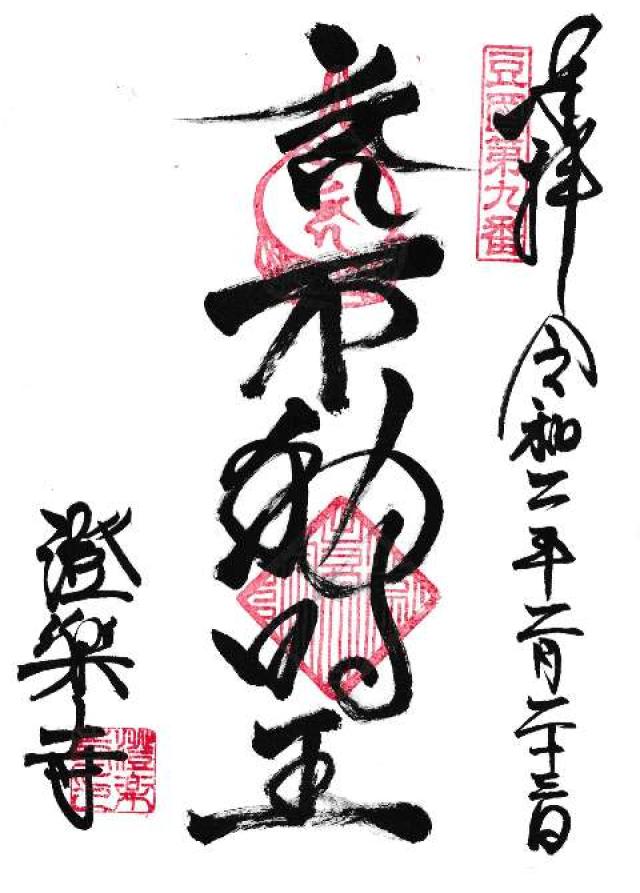 奉拝 令和二年二月二十三日
豆四第九番
不動明王
澄楽寺